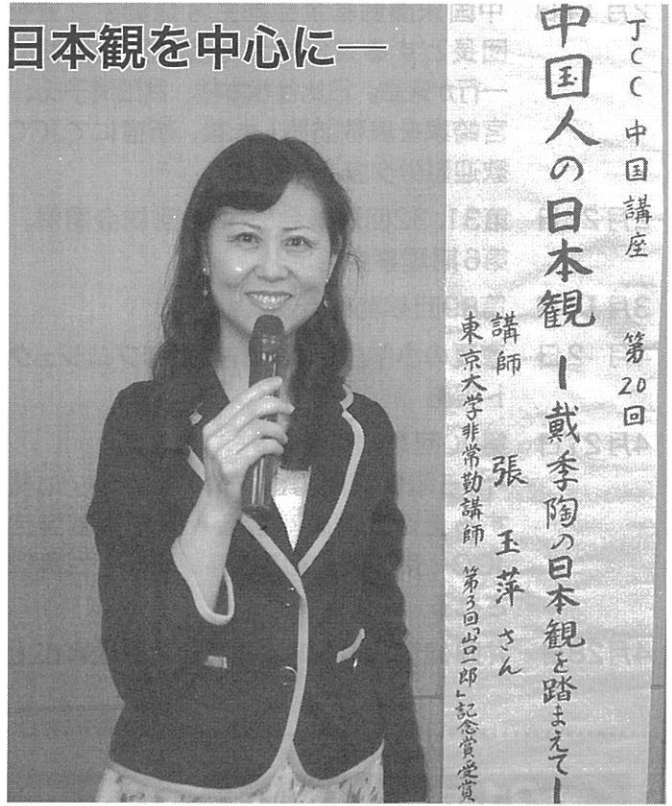 日本観を中心に―
JCC 中国講座 第20回
中国人の日本観 ー戴季陶の日本観を踏まえてー
講師 張 玉萍 さん
東京大学非常勤講師 第3回「山口一郎」記念賞受賞